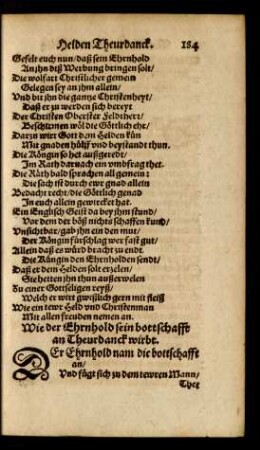 Helden Theurdanck. 184
Gefelt euch nun/ daß sein Ehrnhold
An jhn diß Werbung bringen solt/
Die wolfart Christlicher gemein
Gelegen sey an jhm allein/
Vnd bit jhn die gantze Christenheyt/
Daß er zu werden sich bereyt
Der Christen Oberster Feldtherr/
Beschirmen wöl die Göttlich ehr/
Darzu wirt Gott dem Helden kün
Mit gnaden hülff vnd beystand thun.
Die Köngin so het außgeredt/
Im Rath darnach ein vmbfrag thet.
Die Räth bald sprachen all gemein:
Die sach ist durch ewr gnad allein
Bedacht recht/ die Göttlich genad
In euch allein gewircket hat.
Ein Englisch Geist da bey jhm stund/
Vor dem der böß nichts schaffen kund/
Vnsichtbar/ gab jhn ein den mut/
Der Köngin fürschlag wer fast gut/
Allein daß es würd bracht zu end.
Die Küngin den Ehrnholden sendt/
Daß er dem Helden solt erzelen/
Sie hetten jhn thun außerwelen
Zu einer Gottseligen reyß/
Welch er wirt gwißlich gern mit fleiß
Wie ein tewr Held vnd Christenman
Mit allen freuden nemen an.
Wie der Ehrnhold sein bottschafft
an Theurdanck wirbt.
DEr Ehrnhold nam die bottschafft
an/
Vnd fügt sich zu dem tewren Mann/
Thet